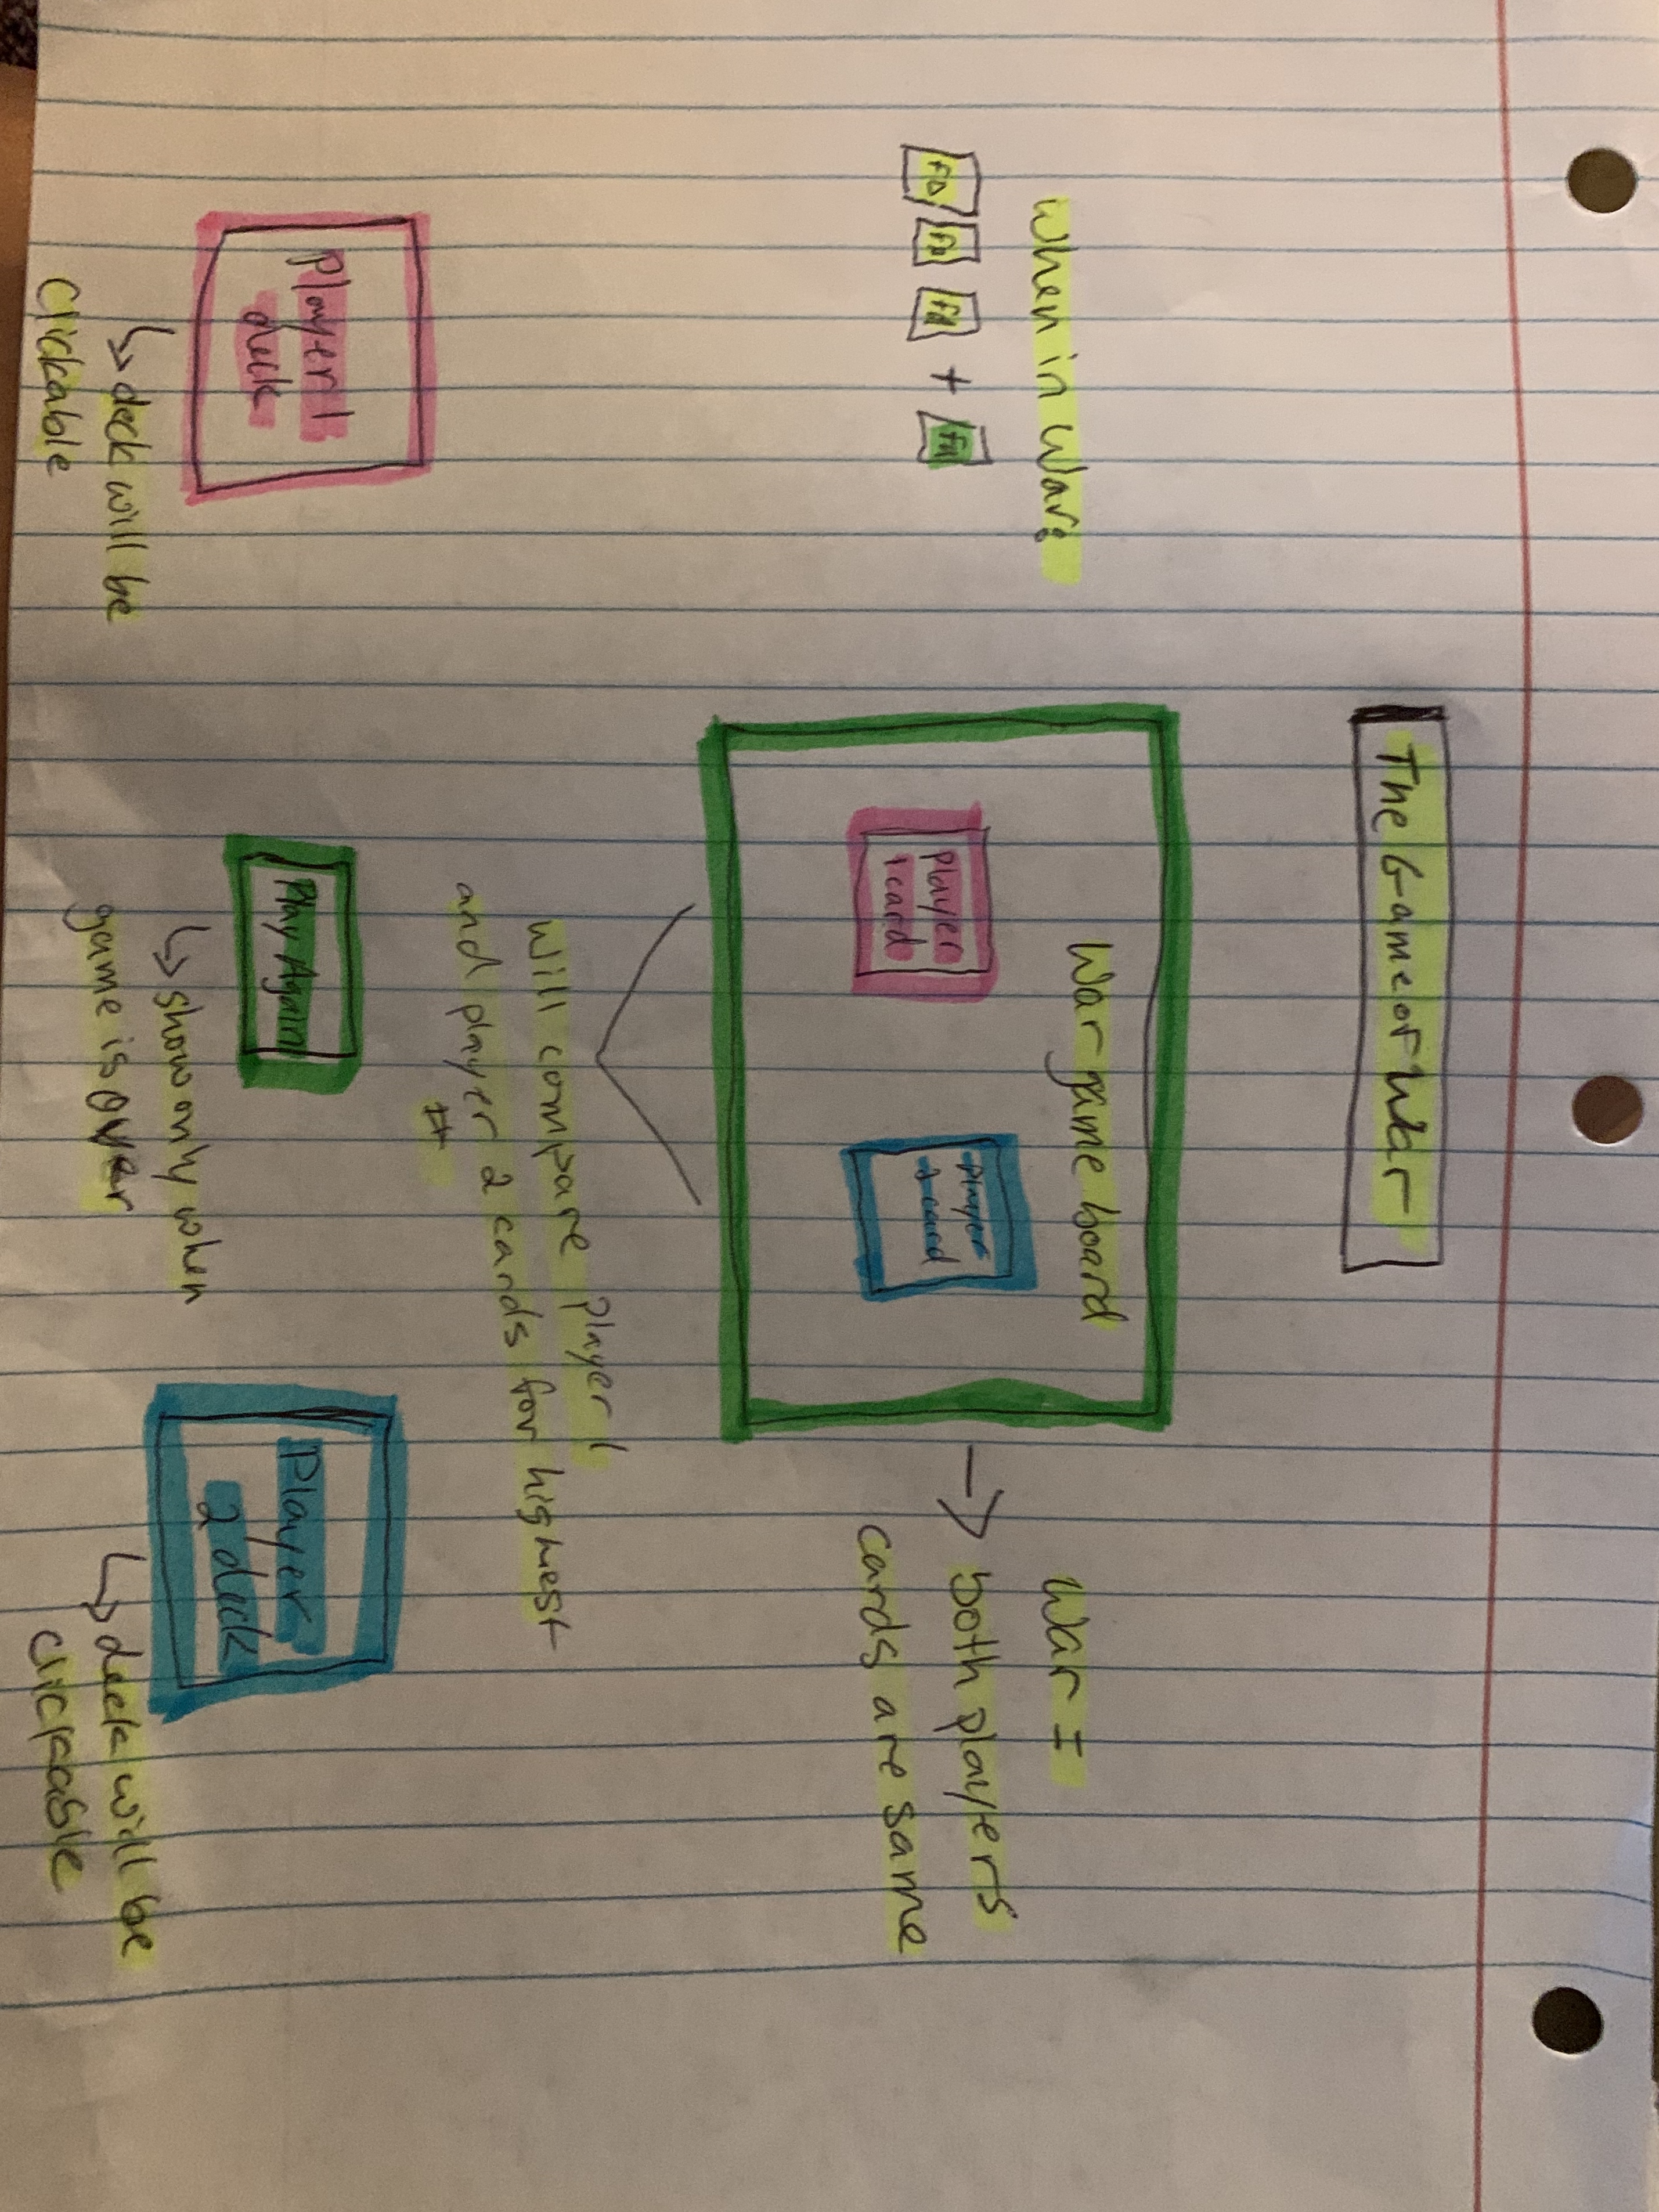 The Game of War
When in War:
FD FD FD + FU
War game board
Player
1 card
Player
2 card
War =
both players
cards are same
Will compare player 1
and player 2 cards for highest
#
Player 1
deck
deck will be
Clickable
Play Again
show only when
game is over
Player
2 deck
deck will be
clickable